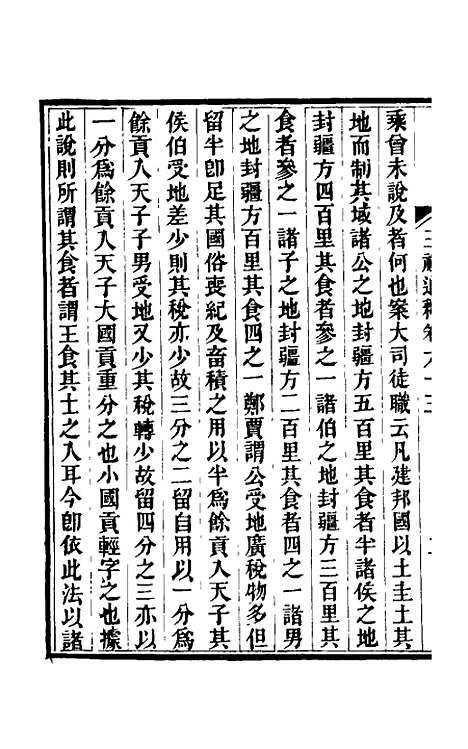 乘曾未說及者何也案大司徒職云凡建邦國以土圭土其
地而制其域諸公之地封疆方五百里其食者半諸侯之地
封疆方四百里其食者參之一諸伯之地封疆方三百里其
食者參之一諸子之地封疆方二百里其食者四之一諸男
之地封疆方百里其食四之一鄭賈謂公受地廣稅物多但
留半卽足其國俗喪紀及畜積之用以半爲餘貢入天子其
侯伯受地差少則其稅亦少故三分之二留自用以一分爲
餘貢入天子子男受地又少其稅轉少故留四分之三亦以
一分爲餘貢入天子大國貢重分之也小國貢輕字之也據
此說則所謂其食者謂王食其士之入耳今卽依此法以諸